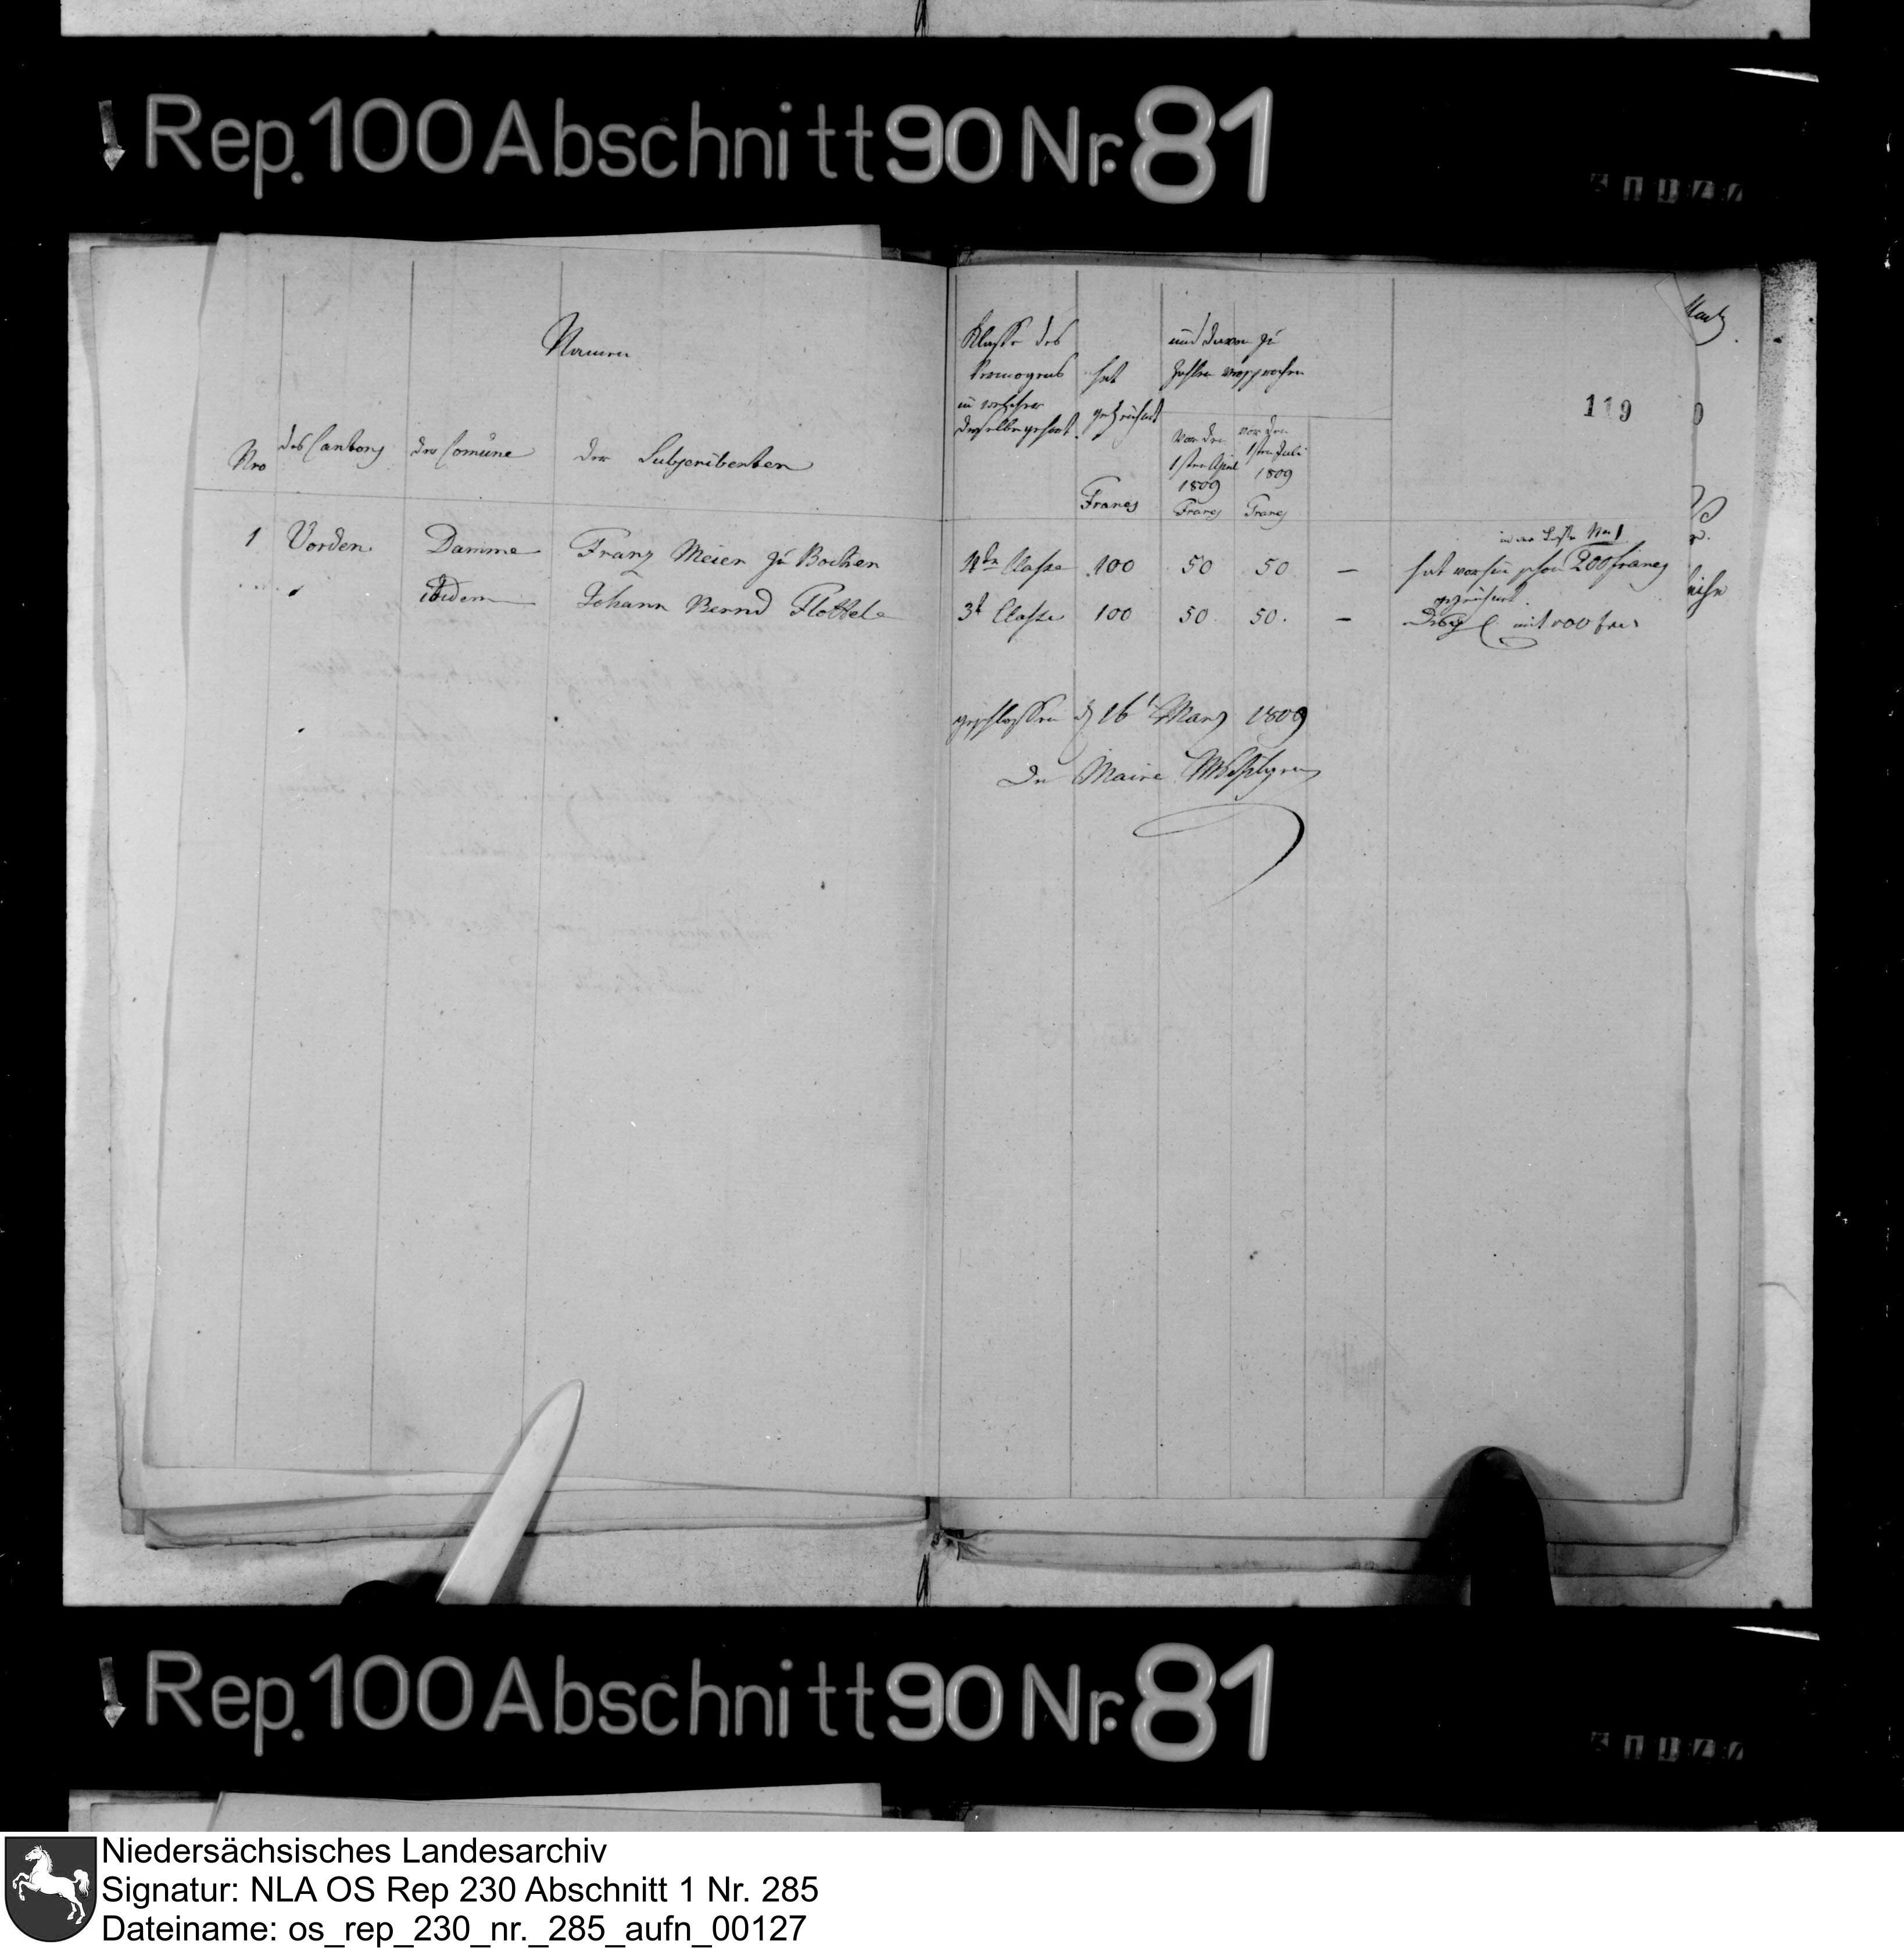 Rep. 100 Abschnitt 90 Nr. 81
Namen
Nro des Cantons der Comüne der Subscribenten
Klasse des
Vermögens
in welcher
derselbe gehört
hat
gezeichnet
Francs
und davon zu
zahlen versprochen
Vor den
1sten April
1809
Francs
vor den
1sten Juli
1809
Francs
119
1 Vörden Damme Franz Meier zu Bochen 4te Classe 100 50 50 —
in der Liste Nro 1
hat vorhin schon 200 francs
gezeichnet
ibidem Johann Bernd Flottele 3te Classe 100 50 50. —
mit 100 frcs
geschlossen d 16t Marz 1809
Der Maire
Rep. 100 Abschnitt 90 Nr. 81
Niedersächsisches Landesarchiv
Signatur: NLA OS Rep 230 Abschnitt 1 Nr. 285
Dateiname: os_rep_230_nr._285_aufn_00127